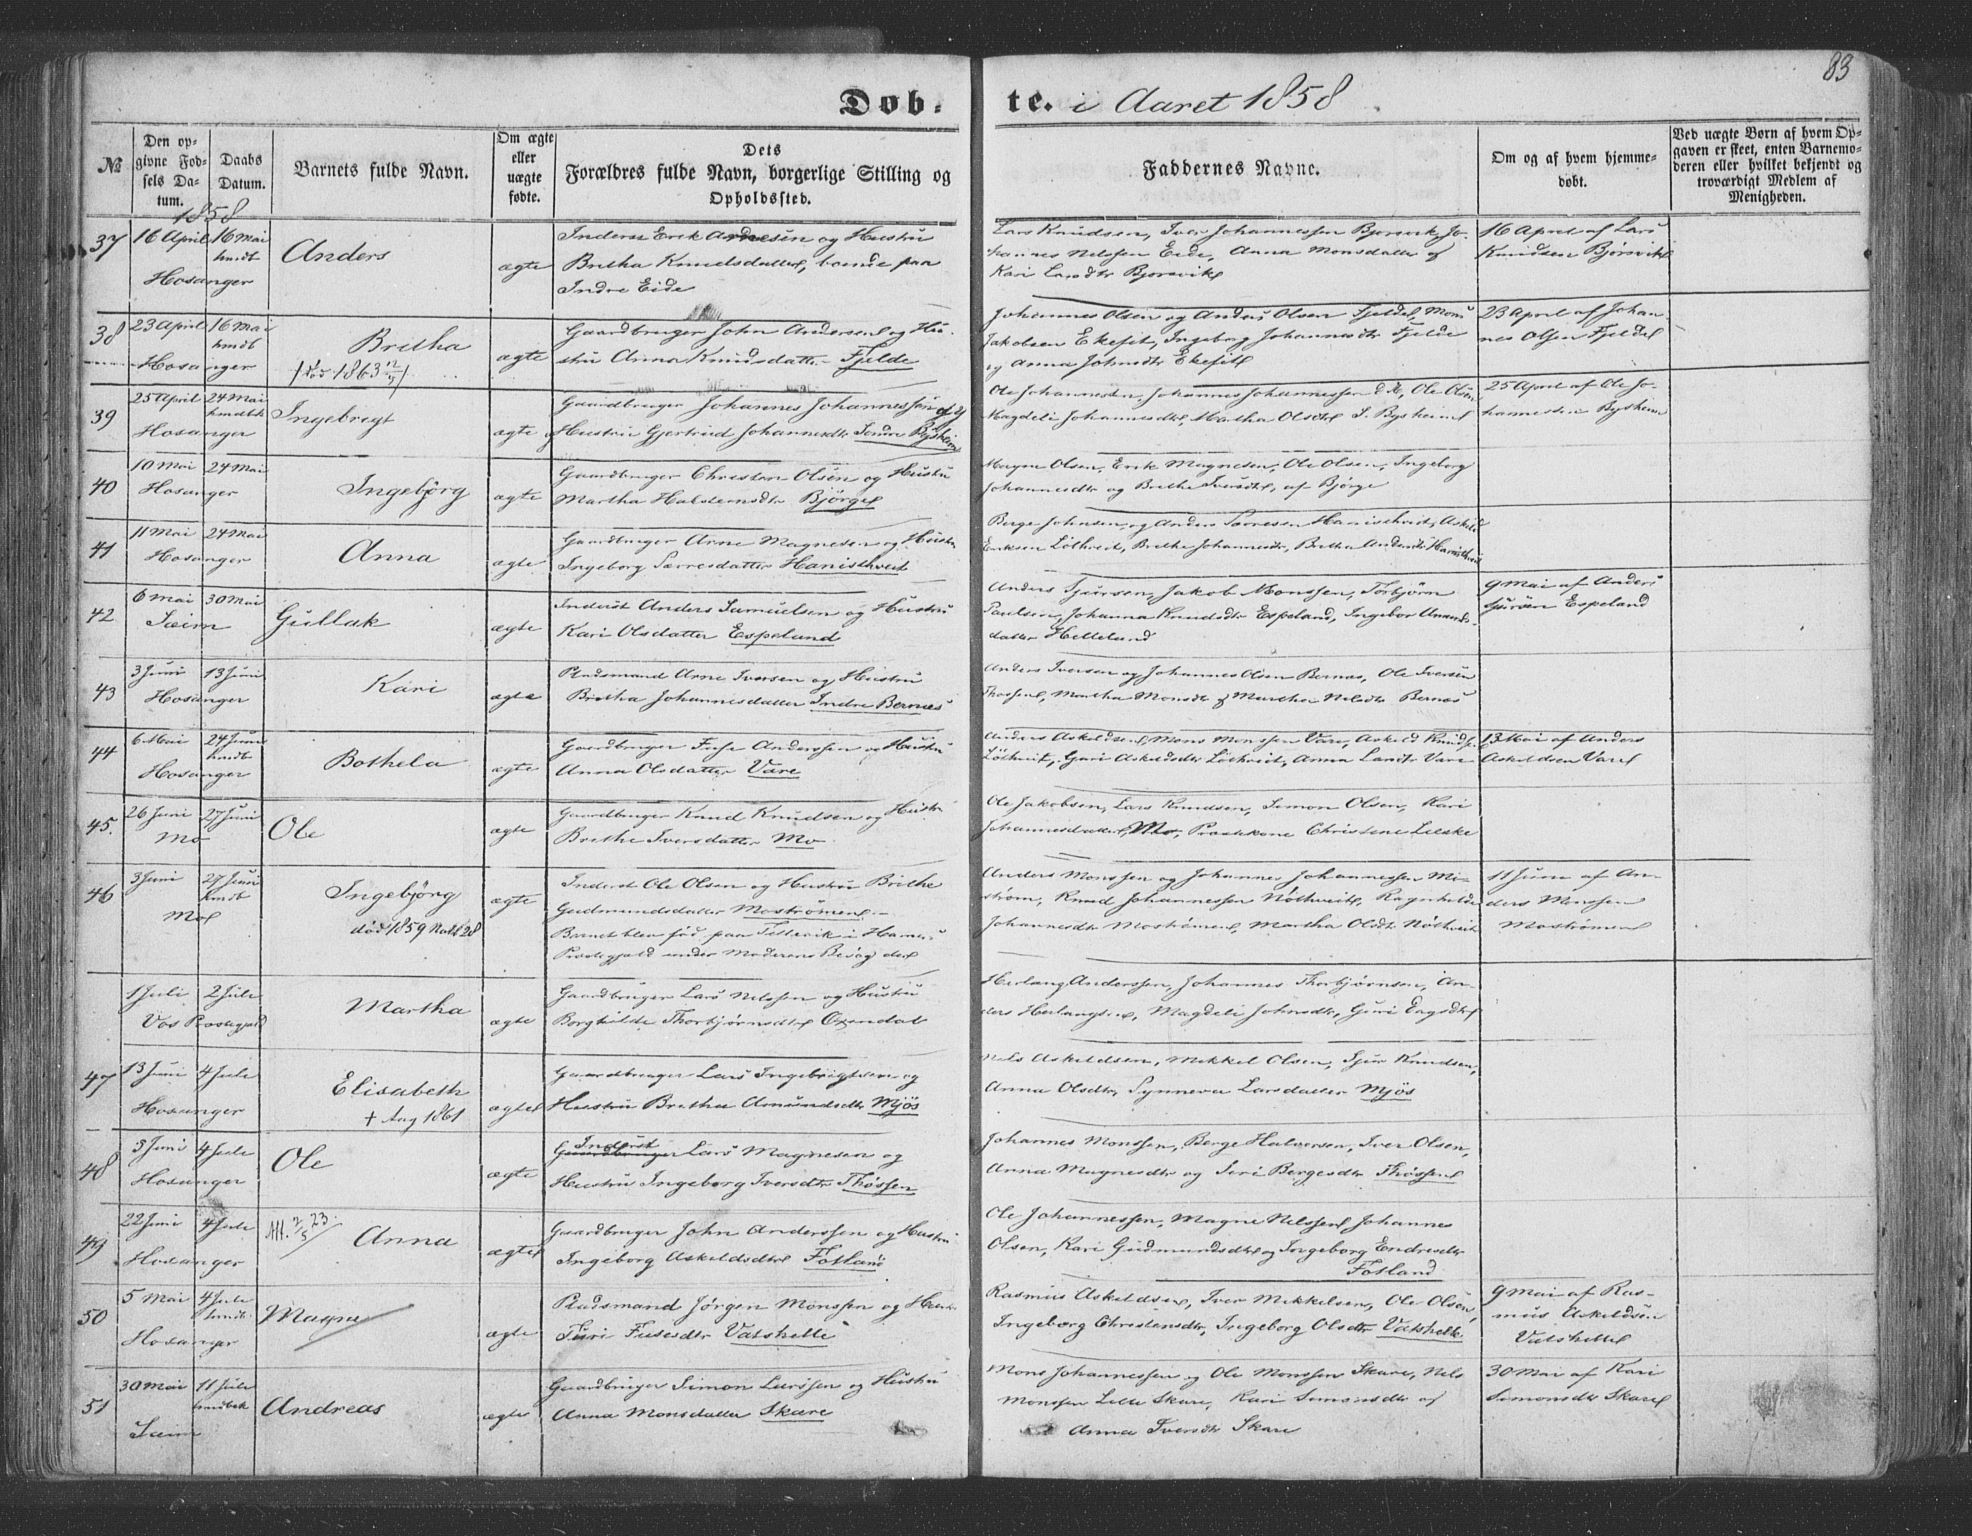 83
Døb. te. i Aaret 1858
№
Den op-
givne Fød-
sels Da-
tum.
Daabs
Datum.
Barnets fulde Navn.
Om ægte
eller
uægte
fødte.
Dets
Forældres fulde Navn, borgerlige Stilling og
Opholdssted.
Faddernes Navne.
Om og af hvem hjemme-
døbt.
Ved uægte Børn af hvem Op-
gaven er skeet, enten Barnemo-
deren eller hvilket bekjendt og
troværdigt Medlem af
Menigheden.
1858
37 16 April 16 Mai
hmdt
Hosanger
Anders
ægte
Inderst Erik Arnesen og Hustru
Bretha Knudsdatter, boende paa
Indre Eide
Lars Knudsen, Iver Johannessen Bjorsvik, Jo-
hannes Nelssen Eide, Anna Monsdatter og
Kari Larsdtr Bjorsvik
16 April af Lars
Knudsen Bjørsvik
38 23 April 16 Mai
hmdt
Hosanger
Bretha
ægte
Gaardbruger John Andersen og Hu-
stru Anna Knudsdatter Fjelde
Johannes Olsen og Anders Olsen Fjelde, Mons
Jakobsen Ekeseit, Ingeborg Johannesdtr Fjelde
og Anna Johnsdtr Ekeseit
23 April af Johan-
nes Olsen Fjelde
39 25 April 24 Mai
hmdbt
Hosanger
Ingebregt
ægte
Gaardbruger Johannes Johannessen og
Hustru Gjertrud Johannesdtr Søndre Bysheim
Ole Johannesen, Johannes Johannessen d. Æ, Ole Olsen
Magdeli Johannesdtr, Martha Olsdtr S. Bysheim
25 April af Ole Jo-
hannesen Bysheim
40 10 Mai 24 Mai
Hosanger
Ingebjörg
ægte
Gaardbruger Christen Olsen og Hustru
Martha Halstensdtr Bjørge
Magne Olsen, Erik Magnesen, Ole Olsen, Ingeborg
Johannesdtr og Brethe Iversdtr, af Bjørge
41 11 Mai 24 Mai
Hosanger
Anna
ægte
Gaardbruger Arne Magnesen og Hustru
Ingeborg Sørresdatter Hanisthveit
Berge Johnsen og Anders Sørresen Hanisthveit, Askild
Eriksen Løthveit, Brethe Johannesdtr, Bretha Andersdtr Hanisthveit
42 6 Mai 30 Mai
Sæim
Gullak
ægte
Inderst Anders Samuelsen og Hustru
Kari Olsdatter Espeland
Anders Sjursen, Jakob Monssen, Torbjørn
Paulsen, Johanna Knudsdtr Espeland, Ingebor Amunds-
datter Helleland
9 Mai af Anders
Sjursen Espeland
43 3 Juni 13 Juni
Hosanger
Kari
ægte
Pladsmand Arne Iversen og Hustru
Bretha Johannesdatter Indre Bernes
Anders Iversen og Johannes Olsen Bernes, Ole Iversen
Thossen, Martha Monsdtr og Martha Nelsdtr Bernes
44 6 Mai 24 Juni
hmdbt
Hosanger
Bothela
ægte
Gaardbruger Fuse Anderssen og Hustru
Anna Olsdatter Vare
Anders Askeldsen, Mons Monssen Vare, Askeld Knudsen
Løthveit, Guri Askeldsdtr Løthveit, Anna Larsdtr Vare
13 Mai af Anders
Askeldsen Vare
45. 26 Juni 27 Juni
Mo
Ole
ægte
Gaardbruger Knud Knudsen og Hustru
Brethe Iversdatter Mo
Ole Jakobsen, Lars Knudsen, Simon Olsen, Kari
Johannesdatter Mo, Prestekone Christene Lelske
46 3 Juni 27 Juni
hmdt
Mo
Ingebjörg
død 1859 No 28
ægte
Inderst Ole Olsen og Hustru Brithe
Gudmundsdatter Mostrømen
Barnet blev fød paa Tettevik i Hammers
Prestegjeld under Moderens Besøg der
Anders Monssen og Johannes Johannessen Mo-
strøm, Knud Johannessen Nøthveit, Ragnhilde
Johannesdtr Mostrømen, Martha Olsdtr Nøthveit
11 Juni af An-
ders Monssen
Mostrømen
1 Juli 2 Juli
Vos Prestegjeld
Martha
ægte
Gaardbruger Lars Nelssen og Hustru
Borghilde Thorbjørnsdtr Oxendal
Herlaug Anderssen, Johannes Thorbjørnsen, An-
ders Herlaugsen, Magdeli Johnsdtr, Guri Dagsdtr
47 13 Juni 4 Juli
Hosanger
Elisabeth
† Aug 1861
ægte
Gaardbruger Lars Ingebrigtsen og
Hustru Bretha Amundsdtr Mjøs
Nels Askeldsen, Mikkel Olsen, Sjur Knudsen,
Anna Olsdtr, Synneva Larsdatter Mjøs
48 3 Juni 4 Juli
Hosanger
Ole
ægte
Inderst
Gaardbruger Lars Magnesen og
Hustru Ingeborg Iversdtr Thossen
Johannes Monssen, Berge Halversen, Iver Olsen,
Anna Magnesdtr og Seri Bergesdtr Thossen
49 22 Juni 4 Juli
Hosanger
Anna
ægte
Gaardbruger John Anderssen og Hustru
Ingeborg Askeldsdtr Fotland
Ole Johannessen, Magne Nelssen, Johannes
Olsen, Kari Gudmundsdtr og Ingeborg Endresdtr
Fotland
50 5 Mai 4 Juli
hmdt
Hosanger
Magne
ægte
Pladsmand Jørgen Monssen og Hustru
Turi Fusesdtr Vatshelle
Rasmus Askeldsen, Iver Mikkelsen, Ole Olsen,
Ingeborg Christensdtr, Ingeborg Olsdtr Vatshelle
9 Mai af Ras-
mus Askeldsen
Vatshelle
51 30 Mai 11 Juli
hmdbt
Sæim
Andreas
ægte
Gaardbruger Simon Larssen og Hustru
Anna Monsdatter Skare
Mons Johannessen og Ole Monssen Skare, Nels
Monssen Lelle Skare, Kari Simonsdtr og
Anna Iversdtr Skare
30 Mai af Kari
Simonsdtr Skare